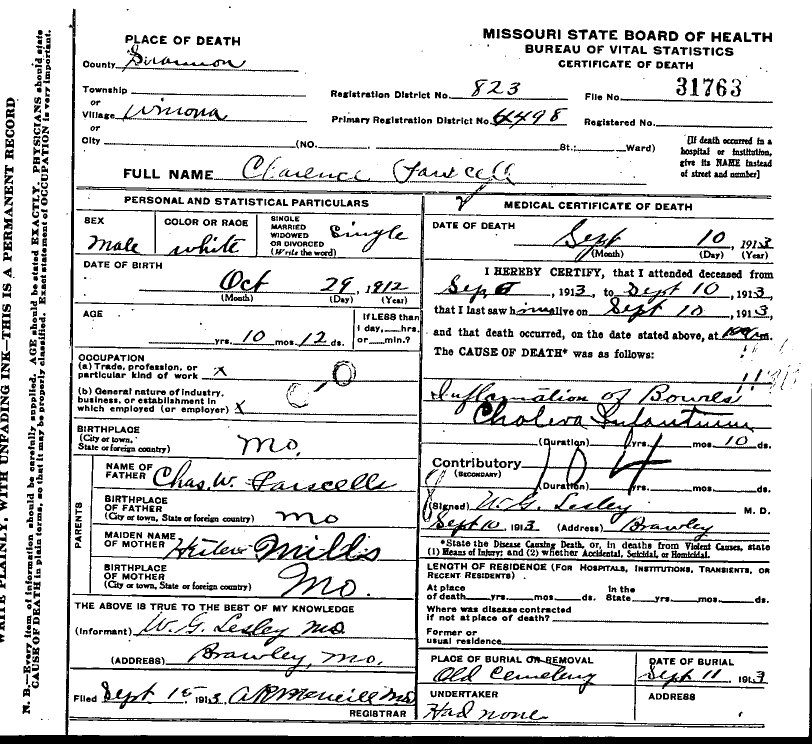 MISSOURI STATE BOARD OF HEALTH
BUREAU OF VITAL STATISTICS
CERTIFICATE OF DEATH
PLACE OF DEATH
County Shannon
Township
or
Village Winona
or
City (NO. St.; Ward)
Registration District No. 823 File No. 31763
Primary Registration District No. 4498 Registered No.
[If death occurred in a
hospital or institution,
give its NAME instead
of street and number]
FULL NAME Clarence
PERSONAL AND STATISTICAL PARTICULARS
SEX
Male
COLOR OR RACE
white
SINGLE
MARRIED
WIDOWED
OR DIVORCED
(Write the word)
Single
DATE OF BIRTH
Oct 29, 1912
(Month) (Day) (Year)
AGE
yrs. 10 mos. 12 ds.
If LESS than
1 day, hrs.
or min.?
OCCUPATION
(a) Trade, profession, or
particular kind of work x
(b) General nature of industry,
business, or establishment in
which employed (or employer) x
BIRTHPLACE
(City or town,
State or foreign country) Mo.
PARENTS
NAME OF
FATHER Chas. W.
BIRTHPLACE
OF FATHER
(City or town, State or foreign country) Mo
MAIDEN NAME
OF MOTHER Mills
BIRTHPLACE
OF MOTHER
(City or town, State or foreign country) Mo.
THE ABOVE IS TRUE TO THE BEST OF MY KNOWLEDGE
(Informant) W. G. Lesley MD.
(ADDRESS) Brawley, Mo.
Filed Sept 15 1913
REGISTRAR
MEDICAL CERTIFICATE OF DEATH
DATE OF DEATH
Sept 10, 1913
(Month) (Day) (Year)
I HEREBY CERTIFY, that I attended deceased from
Sep 1913, to Sept 10, 1913,
that I last saw him alive on Sept 10, 1913,
and that death occurred, on the date stated above, at m.
The CAUSE OF DEATH* was as follows:
Inflamation of Bowels
Cholera Infantum
(Duration) yrs. mos. 10 ds.
104
Contributory
(SECONDARY)
(Duration) yrs. mos. ds.
(Signed) W. G. Lesley M. D.
Sept 10, 1913 (Address) Brawley
*State the Disease Causing Death, or, in deaths from Violent Causes, state
(1) Means of Injury; and (2) whether Accidental, Suicidal, or Homicidal.
LENGTH OF RESIDENCE (FOR HOSPITALS, INSTITUTIONS, TRANSIENTS, OR
RECENT RESIDENTS)
At place In the
of death yrs. mos. ds. State yrs. mos. ds.
Where was disease contracted
if not at place of death?
Former or
usual residence
PLACE OF BURIAL OR REMOVAL
Old Cemetery
DATE OF BURIAL
Sept 11, 1913
UNDERTAKER
Had none
ADDRESS
WRITE PLAINLY, WITH UNFADING INK—THIS IS A PERMANENT RECORD
N. B.—Every item of information should be carefully supplied. AGE should be stated EXACTLY. PHYSICIANS should state
CAUSE OF DEATH in plain terms, so that it may be properly classified. Exact statement of OCCUPATION is very important.